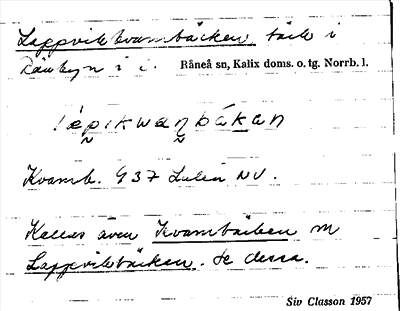 Lappvikkvarnbäcken, bäck i
Rånbyn i i. Råneå sn, Kalix doms. o. tg. Norrb. l.
Kvarnb. 937 Luleå NV.
Kallas även Kvarnbäcken o
Lappvikbäcken. Se dessa.
Siv Classon 1957